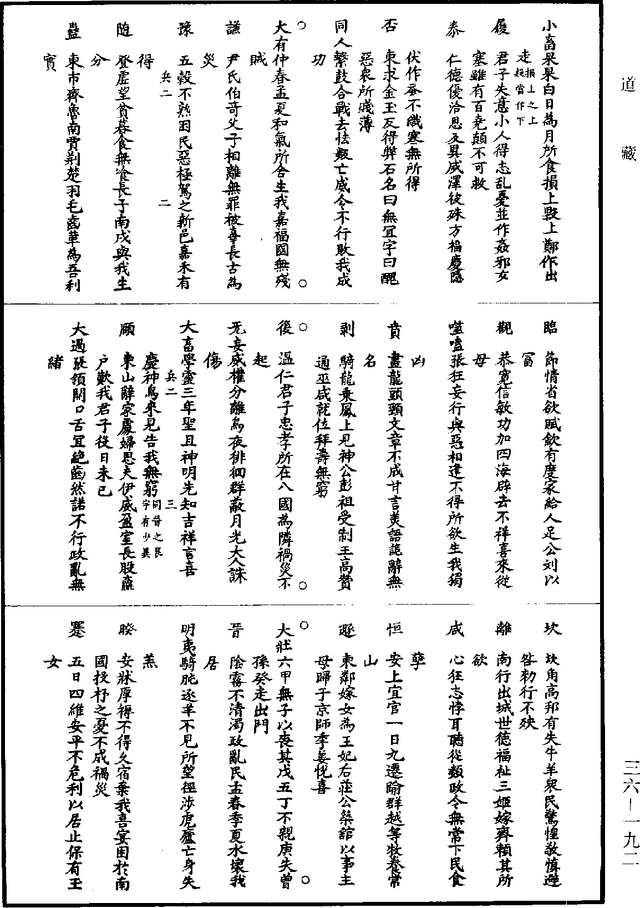 道藏
小畜杲杲白日為月所食損上毀上鄭作出
走損上之上
疑當作下
履　君子失意小人得志乱憂並作姦邪女
塞雖有百堯顛不可救
泰　仁德優洽恩及異域澤被殊方福慶隱
伏作蚕不織寒無所得
否　東求金玉反得弊石名曰無宜字曰醜
惡衆所賤薄
同人繫鼓合戰去怯叛亡威令不行敗我成
功
大有仲春孟夏和氣所合生我嘉福國無殘
賊
謙　尹氏伯奇父子相離無罪被辜長古為
災
豫　五穀不熟困民惡極駕之新邑嘉禾有
得
隨　登虛望貧暮食無飱長子南戌與我生
分
蠱　東市齊魯南賈荆楚羽毛齒革為吾利
寳
臨　節情省欲賦斂有度家給人足公劉以
富
觀　恭寬信敏功加四海辟去不祥喜來從
母
噬嗑張狂妄行與惡相逢不得所欲生我獨
凶
賁　畫龍頭頸文章不成甘言美語詭辭無
名
剥　騎龍乘鳳上見神公彭祖受制王高贊
通巫咸就位拜壽無窮
復　温仁君子忠孝所在八國為隣禍災不
起
无妄威權分離烏夜徘徊群蔽月光大人誅
傷
大畜學靈三年聖且神明先知吉祥言喜
慶神鳥來見告我無窮
頤　東山辭家處婦思夫伊威盈室長股羸
户歎我君子役日未已
大過張領開口舌宜絶齒然諾不行政亂無
緒
坎　坎角高邦有失牛羊衆民驚惶敬慎避
咎勑行不殃
離　南行出城世德福祉三姬嫁齊賴其所
欲
咸　心狂志悖耳聽從類政令無常下民食
孽
恒　安上宜官一日九遷踰群越等牧養常
山
遯　東鄰嫁女為王妃后莊公築舘以事主
母歸于京師季姜悅喜
大壯六甲無子以喪其戊五丁不親庚失曾
孫癸走出門
晉　陰霧不清濁政亂民孟春季夏水壞我
居
明夷騎䏲逐羊不見所望徑涉虎廬亡身失
羔
睽　安牀厚褥不得久宿棄我喜宴困於南
國投杼之憂不成禍災
蹇　五日四維安平不危利以居止保有玉
女
三六—一九二